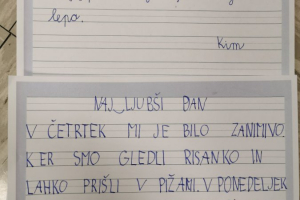 lepo.
Kim
NAJLJUBŠI DAN
V ČETRTEK MI JE BILO ZANIMIVO.
KER SMO GLEDLI RISANKO IN
LAHKO PRIŠLI V PIŽAMI. V PONEDELJEK